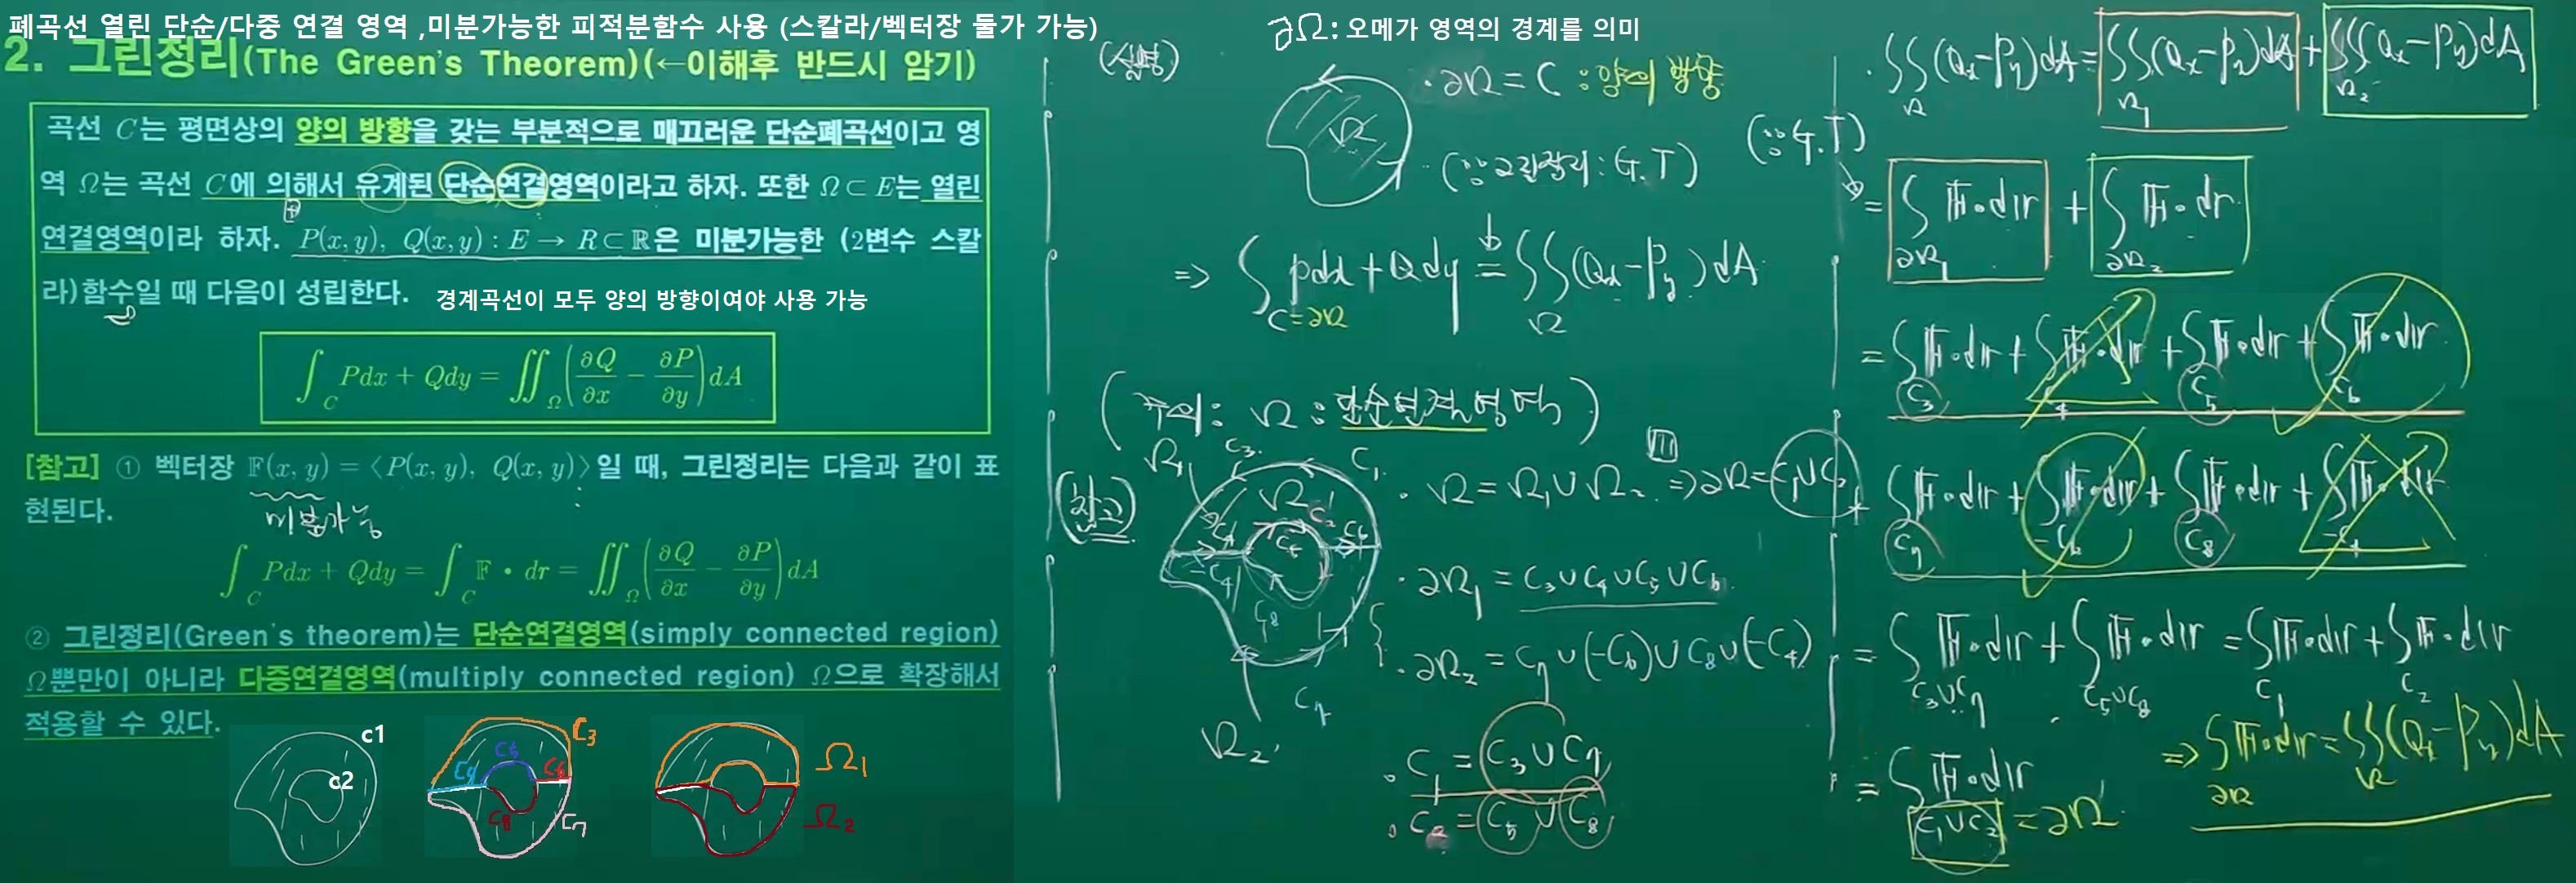 폐곡선 열린 단순/다중 연결 영역 ,미분가능한 피적분함수 사용 (스칼라/벡터장 둘가 가능)
2. 그린정리(The Green's Theorem)(←이해후 반드시 암기)
곡선 C는 평면상의 양의 방향을 갖는 부분적으로 매끄러운 단순폐곡선이고 영
역 Ω는 곡선 C에 의해서 유계된 단순연결영역이라고 하자. 또한 Ω⊂E는 열린
연결영역이라 하자. P(x,y), Q(x,y) : E → R⊂ℝ은 미분가능한 (2변수 스칼
라)함수일 때 다음이 성립한다.
경계곡선이 모두 양의 방향이여야 사용 가능
∫_C Pdx + Qdy = ∬_Ω (∂Q/∂x − ∂P/∂y) dA
[참고] ① 벡터장 𝔽(x, y) = ⟨P(x, y), Q(x, y)⟩일 때, 그린정리는 다음과 같이 표
현된다.
미분가능
∫_C Pdx + Qdy = ∫_C 𝔽 • dr = ∬_Ω (∂Q/∂x − ∂P/∂y) dA
② 그린정리(Green's theorem)는 단순연결영역(simply connected region)
Ω뿐만이 아니라 다중연결영역(multiply connected region) Ω으로 확장해서
적용할 수 있다.
c1
c2
C3
C4
C5
C6
C7
C8
Ω1
Ω2
∂Ω: 오메가 영역의 경계를 의미
(설명)
Ω
· ∂Ω = C : 양의 방향
(∵ 그린정리 : G.T)
⇒ ∫_{C=∂Ω} Pdx + Qdy = ∬_Ω (Qx − Py) dA
(주의: Ω : 단순연결영역)
(참고)
Ω1
C3
C1
Ω
C2
C4
C5
C6
-C4
C8
C7
Ω2
· Ω = Ω1 ∪ Ω2 ⇒ ∂Ω = C1 ∪ C2
· ∂Ω1 = C3 ∪ C4 ∪ C5 ∪ C6
· ∂Ω2 = C7 ∪ (−C6) ∪ C8 ∪ (−C4)
· C1 = C3 ∪ C7
· C2 = C5 ∪ C8
· ∬_Ω (Qx − Py) dA = ∬_Ω1 (Qx − Py) dA + ∬_Ω2 (Qx − Py) dA
(∵ G.T)
= ∫_∂Ω1 𝔽 • dr + ∫_∂Ω2 𝔽 • dr
= ∫_C3 𝔽 • dr + ∫_C4 𝔽 • dr + ∫_C5 𝔽 • dr + ∫_C6 𝔽 • dr
∫_C7 𝔽 • dr + ∫_−C6 𝔽 • dr + ∫_C8 𝔽 • dr + ∫_−C4 𝔽 • dr
= ∫_C3∪C7 𝔽 • dr + ∫_C5∪C8 𝔽 • dr = ∫_C1 𝔽 • dr + ∫_C2 𝔽 • dr
= ∫_C1∪C2 𝔽 • dr = ∂Ω
⇒ ∫_∂Ω 𝔽 • dr = ∬_Ω (Qx − Py) dA